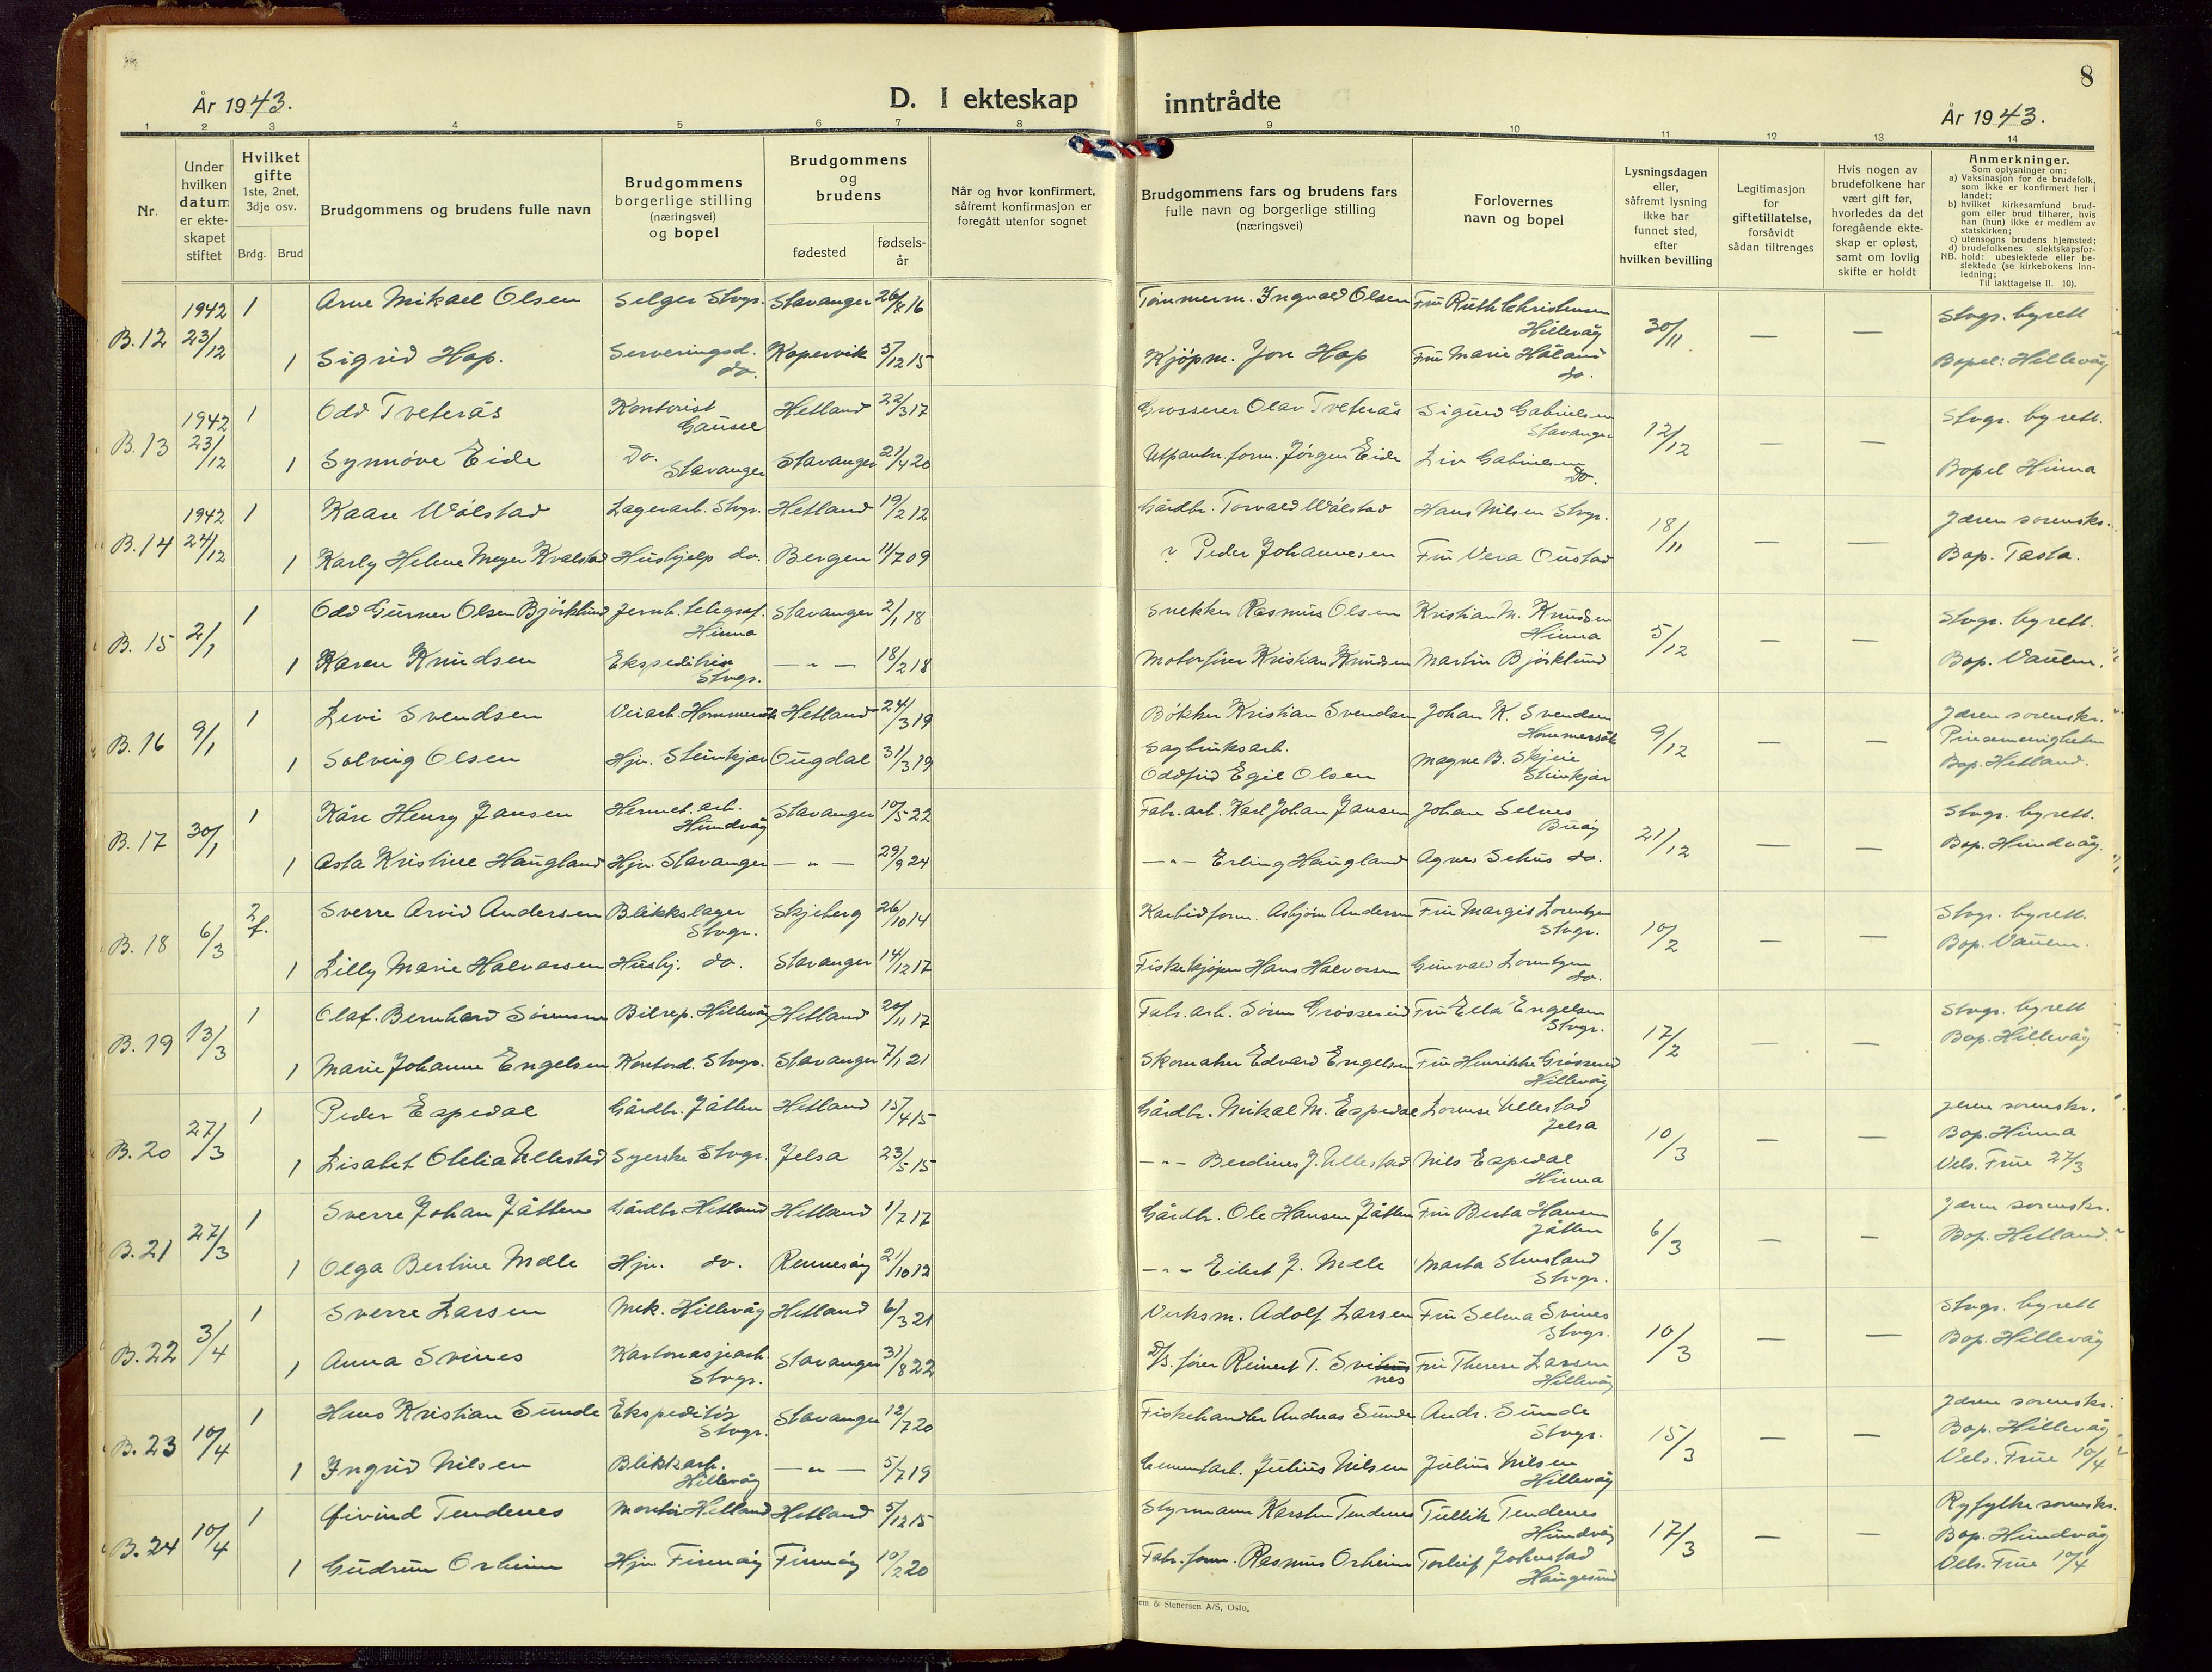 8
År 1943.
D. I ekteskap inntrådte
År 1943.
1 2 3 4 5 6 7 8 9 10 11 12 13 14
Nr.
Under hvilken datum er ekteskapet stiftet
Hvilket gifte 1ste, 2net, 3dje osv.
Brdg. Brud
Brudgommens og brudens fulle navn
Brudgommens borgerlige stilling (næringsvei) og bopel
Brudgommens og brudens
fødested
fødsels-år
Når og hvor konfirmert, såfremt konfirmasjon er foregått utenfor sognet
Brudgommens fars og brudens fars fulle navn og borgerlige stilling (næringsvei)
Forlovernes navn og bopel
Lysningsdagen eller, såfremt lysning ikke har funnet sted, efter hvilken bevilling
Legitimasjon for giftetillatelse, forsåvidt sådan tiltrenges
Hvis nogen av brudefolkene har vært gift før, hvorledes da det foregående ekteskap er opløst, samt om lovlig skifte er holdt
Anmerkninger.
Som oplysninger om:
a) Vaksinasjon for de brudefolk, som ikke er konfirmert her i landet;
b) hvilket kirkesamfund brudgom eller brud tilhører, hvis han (hun) ikke er medlem av statskirken;
c) utensogns brudens hjemsted;
d) brudefolkenes slektskapsforhold: ubeslektede eller beslektede (se kirkebokens innledning;
NB.
Til iakttagelse II. 10).
B. 12 1942 23/12 1 Arne Mikael Olsen Selger Stvgr. Stavanger 26/8 16 Tømmerm. Ingvald Olsen Fru Ruth Christensen Hillevåg 30/11 — — Stvgr. byrett
1 Sigrid Hop. Serveringsd. do. Kopervik 5/12 15 Kjøpm. Jon Hop Fru Marie Håland do. Bopel: Hillevåg
B. 13 1942 23/12 1 Odd Tveterås Kontorist Gausel Hetland 22/3 17 Grosserer Olav Tveterås Sigurd Gabrielsen Stavanger 12/12 — — Stvgr. byrett.
1 Synnøve Eide Do. Stavanger Stavanger 21/4 20 Utpantn.form. Jørgen Eide Liv Gabrielsen Do. Bopel Hinna
B. 14 1942 24/12 1 Kaare Wålstad Lagerarb. Stvgr. Hetland 19/2 12 Gårdbr. Torvald Wålstad Hans Nilsen Stvgr. 18/11 — — Jæren sorenskr.
1 Karly Helene Meyer Kvalstad Hushjelp do. Bergen 11/7 09 ? Peder Johannesen Fru Vera Oustad Bop. Tasta.
B. 15 2/1 1 Odd Gunner Olsen Bjørklund Jernb. telegraf. Hinna Stavanger 2/1 18 Snekker Rasmus Olsen Kristian M. Knudsen Hinna 5/12 — — Stvgr. byrett.
1 Karen Knudsen Ekspeditrise Stvgr. — " — 18/2 18 Motorfører Kristian Knudsen Martin Bjørklund Bop. Vaulen.
B. 16 9/1 1 Levi Svendsen Veiarb. Hommersåk Hetland 24/3 19 Bøkker Kristian Svendsen Johan K. Svendsen Hommersåk 9/12 — — Jæren sorenskr. Pinsemenigheten
1 Solveig Olsen Hjv. Steinkjær Ougdal 31/3 19 Sagbruksarb. Oddfrid Egil Olsen Magne B. Skjeie Steinkjær Bop. Hetland.
B. 17 30/1 1 Kåre Henry Jansen Hermet.arb. Hundvåg Stavanger 10/5 22 Fabr.arb. Karl Johan Jansen Johan Selnes Buøy 21/12 — — Stvgr. byrett.
1 Asta Kristine Haugland Hjv. Stavanger — " — 29/9 24 — " — Erling Haugland Agnes Sehus do. Bop. Hundvåg.
B. 18 6/3 2 f. Sverre Arvid Andersen Blikkslager Stvgr. Skjeberg 26/10 14 Karbidform. Asbjørn Andersen Fru Margit Lorentzen Stvgr. 10/2 — — Stvgr. byrett.
1 Lilly Marie Halvorsen Hushj. do. Stavanger 14/12 17 Fiskekjøper Hans Halvorsen Gunvald Lorentzen do. Bop. Vaulen.
B. 19 13/3 1 Olaf Bernhard Sørensen Bilrep. Hillevåg Hetland 20/11 17 Fabr.arb. Søren Grøsserud Fru Ella Engelsen Stvgr. 17/2 — — Stvgr. byrett
1 Marie Johanne Engelsen Kontord. Stvgr. Stavanger 7/1 21 Skomaker Edvard Engelsen Fru Henrikke Grøsserud Hillevåg Bop. Hillevåg
B. 20 27/3 1 Peder Espedal Gårdbr. Jåtten Hetland 15/4 15 Gårdbr. Mikal M. Espedal Lorense Ullestad Jelsa 10/3 — — Jæren sorenskr. Bop. Hinna
1 Lisabet Otelia Ullestad Syerske Stvgr. Jelsa 23/5 15 — " — Berdines J. Ullestad Nils Espedal Hinna Vels. Frue 27/3
B. 21 27/3 1 Sverre Johan Jåtten Gårdbr. Hetland Hetland 1/7 17 Gårdbr. Ole Hansen Jåtten Fru Berta Hansen Jåtten 6/3 — — Jæren sorenskr.
1 Olga Bertine Mæle Hjv. do. Rennesøy 21/10 12 — " — Eilert J. Mæle Marta Stensland Stvgr. Bop. Hetland.
B. 22 3/4 1 Sverre Larsen Mek. Hillevåg Hetland 6/3 21 Verksm. Adolf Larsen Fru Selma Svines Stvgr. 10/3 — — Stvgr. byrett
1 Anna Svines Kartonasjearb. Stvgr. Stavanger 31/8 22 D/s. fører Reinert T. Svines Fru Therese Larsen Hillevåg Bop. Hillevåg
B. 23 10/4 1 Hans Kristian Sunde Ekspeditør Stvgr. Stavanger 12/7 20 Fiskehandler Andreas Sunde Andr. Sunde Stvgr. 15/3 — — Jæren sorenskr. Bop. Hillevåg
1 Ingrid Nilsen Blikkarb. Hillevåg — " — 5/7 19 Cementarb. Julius Nilsen Julius Nilsen Hillevåg Vels. Frue 10/4
B. 24 10/4 1 Øivind Tendenes Montør Hetland Hetland 5/12 15 Styrmann Karsten Tendenes Tullik Tendenes Hundvåg 17/3 — — Ryfylke sorenskr. Bop. Hundvåg
1 Gudrun Orheim Hjv. Finnøy Finnøy 10/2 20 Fabr.form. Rasmus Orheim Torleif Jokstad Haugesund Vels. Frue 10/4
em & Stenersen A/S, Oslo.